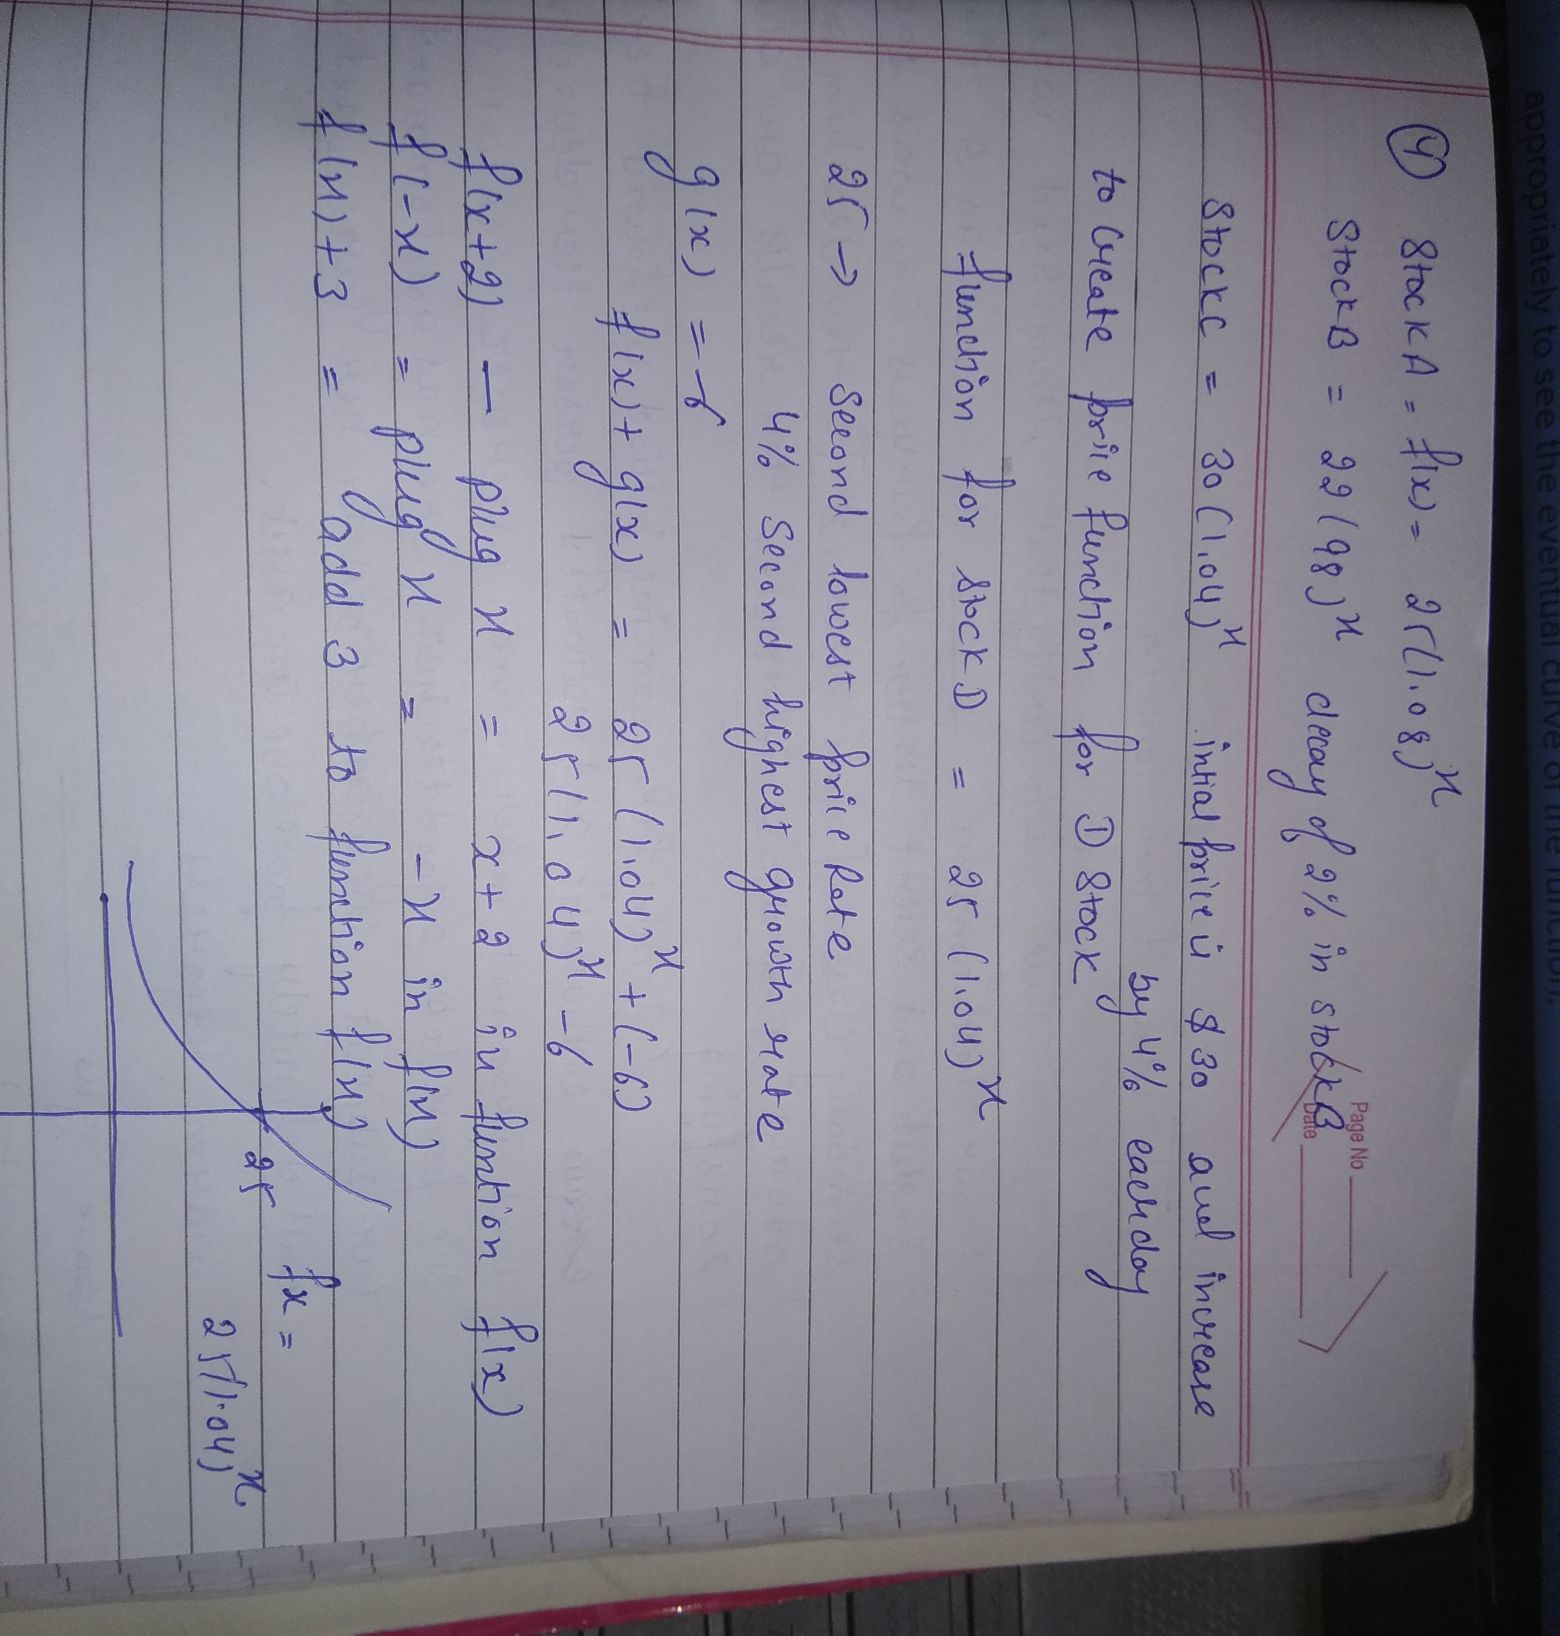 appropriately to see the eventual curve of the function,
Page No
Date
④ Stock A = f(x) = 25(1.08)^x
Stock B = 22(98)^x decay of 2% in stock B
Stock C = 30(1.04)^x intial price is $30 and increase
by 4% each day
to create price function for D Stock
function for stock D = 25(1.04)^x
25 → Second lowest price Rate
4% Second highest growth rate
g(x) = -6
f(x) + g(x) = 25(1.04)^x + (-6)
25(1.04)^x - 6
f(x+2) — plug x = x+2 in funtion f(x)
f(-x) = plug x = -x in f(x)
f(x)+3 = add 3 to function f(x)
25 fx =
25(1.04)^x